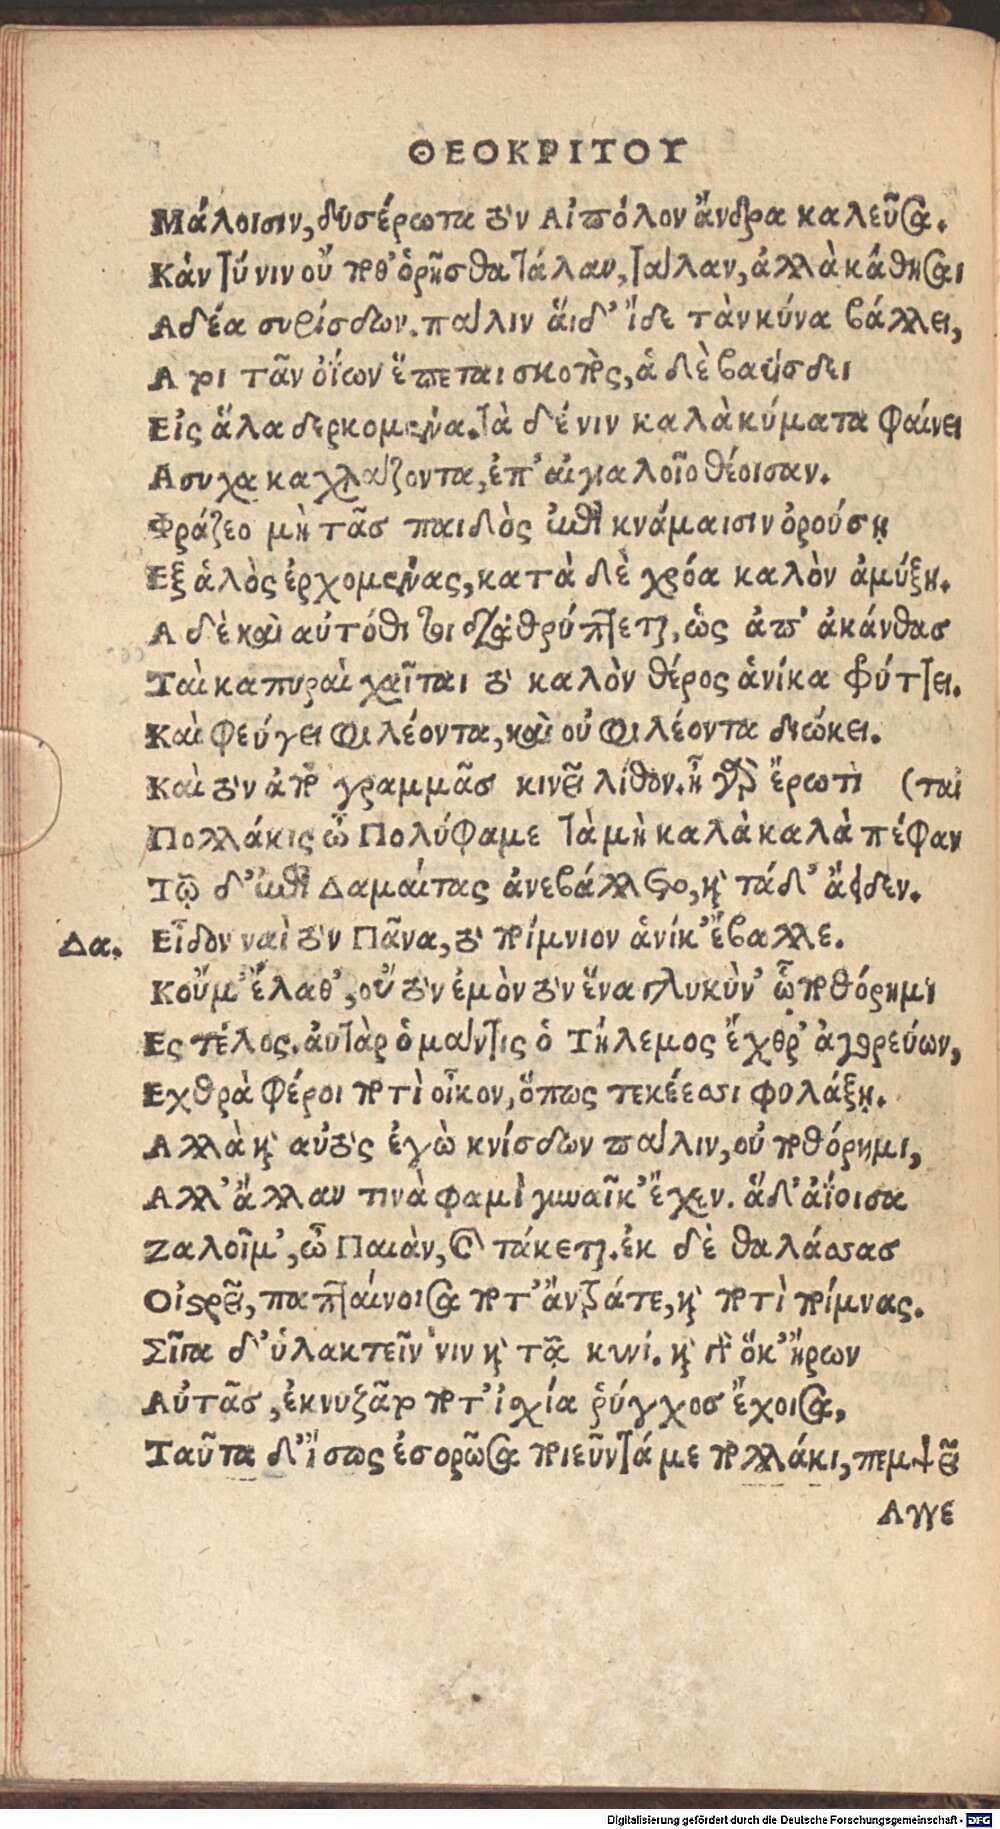 ΘΕΟΚΡΙΤΟΥ
Μάλοισιν, δυσέρωτα τὸν Αἰπόλον ἄνδρα καλεῦσα.
Κὰν τύ νιν οὐ ποθ' ὁρῆσθα τάλαν, τάλαν, ἀλλὰ κάθησαι
Αδέα συρίσδων. πάλιν ἅιδ' ἴδε τὰν κύνα βάλλει,
Α τοι τᾶν ὀΐων ἕπεται σκοπὸς, ἁ δὲ βαΰσδει
Εἰς ἅλα δερκομένα. τὰ δέ νιν καλὰ κύματα φαίνει
Ασυχα καχλάζοντα, ἐπ' αἰγιαλοῖο θέοισαν.
Φράζεο μὴ τᾶς παιδὸς ἐπὶ κνάμαισιν ὀρούσῃ
Εξ ἁλὸς ἐρχομένας, κατὰ δὲ χρόα καλὸν ἀμύξῃ.
Α δὲ καὶ αὐτόθι τοι διαθρύπτεται, ὡς ἀπ' ἀκάνθας
Ταὶ καπυραὶ χαῖται τὸ καλὸν θέρος ἁνίκα φρύττει.
Καὶ φεύγει φιλέοντα, καὶ οὐ φιλέοντα διώκει.
Καὶ τὸν ἀπὸ γραμμᾶς κινεῖ λίθον. ἦ γὰρ ἔρωτι (ται
Πολλάκις ὦ Πολύφαμε τὰ μὴ καλὰ καλὰ πέφαν
Τῷ δ' ἐπὶ Δαμαίτας ἀνεβάλλετο, καὶ τάδ' ἄειδεν.
Δα. Εἶδον ναὶ τὸν Πᾶνα, τὸ ποίμνιον ἁνίκ' ἔβαλλε.
Κοὔμ' ἔλαθ', οὔ τὸν ἐμὸν τὸν ἕνα γλυκὺν ᾧ ποθόρημι
Ες τέλος. αὐτὰρ ὁ μάντις ὁ Τήλεμος ἔχθρ' ἀγορεύων,
Εχθρὰ φέροι ποτὶ οἶκον, ὅπως τεκέεσσι φυλάξῃ.
Αλλὰ καὶ αὐτὸς ἐγὼ κνίσδων πάλιν, οὐ ποθόρημι,
Αλλ' ἄλλαν τινὰ φαμὶ γυναῖκ' ἔχεν. ἅδ' ἀΐοισα
Ζαλοῖμ', ὦ Παιὰν, καὶ τάκεται. ἐκ δὲ θαλάσσας
Οἰστρεῖ, παπταίνοισα ποτ' ἄντρά τε, καὶ ποτὶ ποίμνας.
Σῖγα δ' ὑλακτεῖν νιν καὶ τᾷ κυνί. καὶ γὰρ ὅκ' ἤρων
Αὐτᾶς, ἐκνυζᾶτο ποτ' ἰσχία ῥύγχος ἔχοισα,
Ταῦτα δ' ἴσως ἐσορῶσα ποιεῦντά με πολλάκι, πεμψεῖ
Αγγε
Digitalisierung gefördert durch die Deutsche Forschungsgemeinschaft - DFG